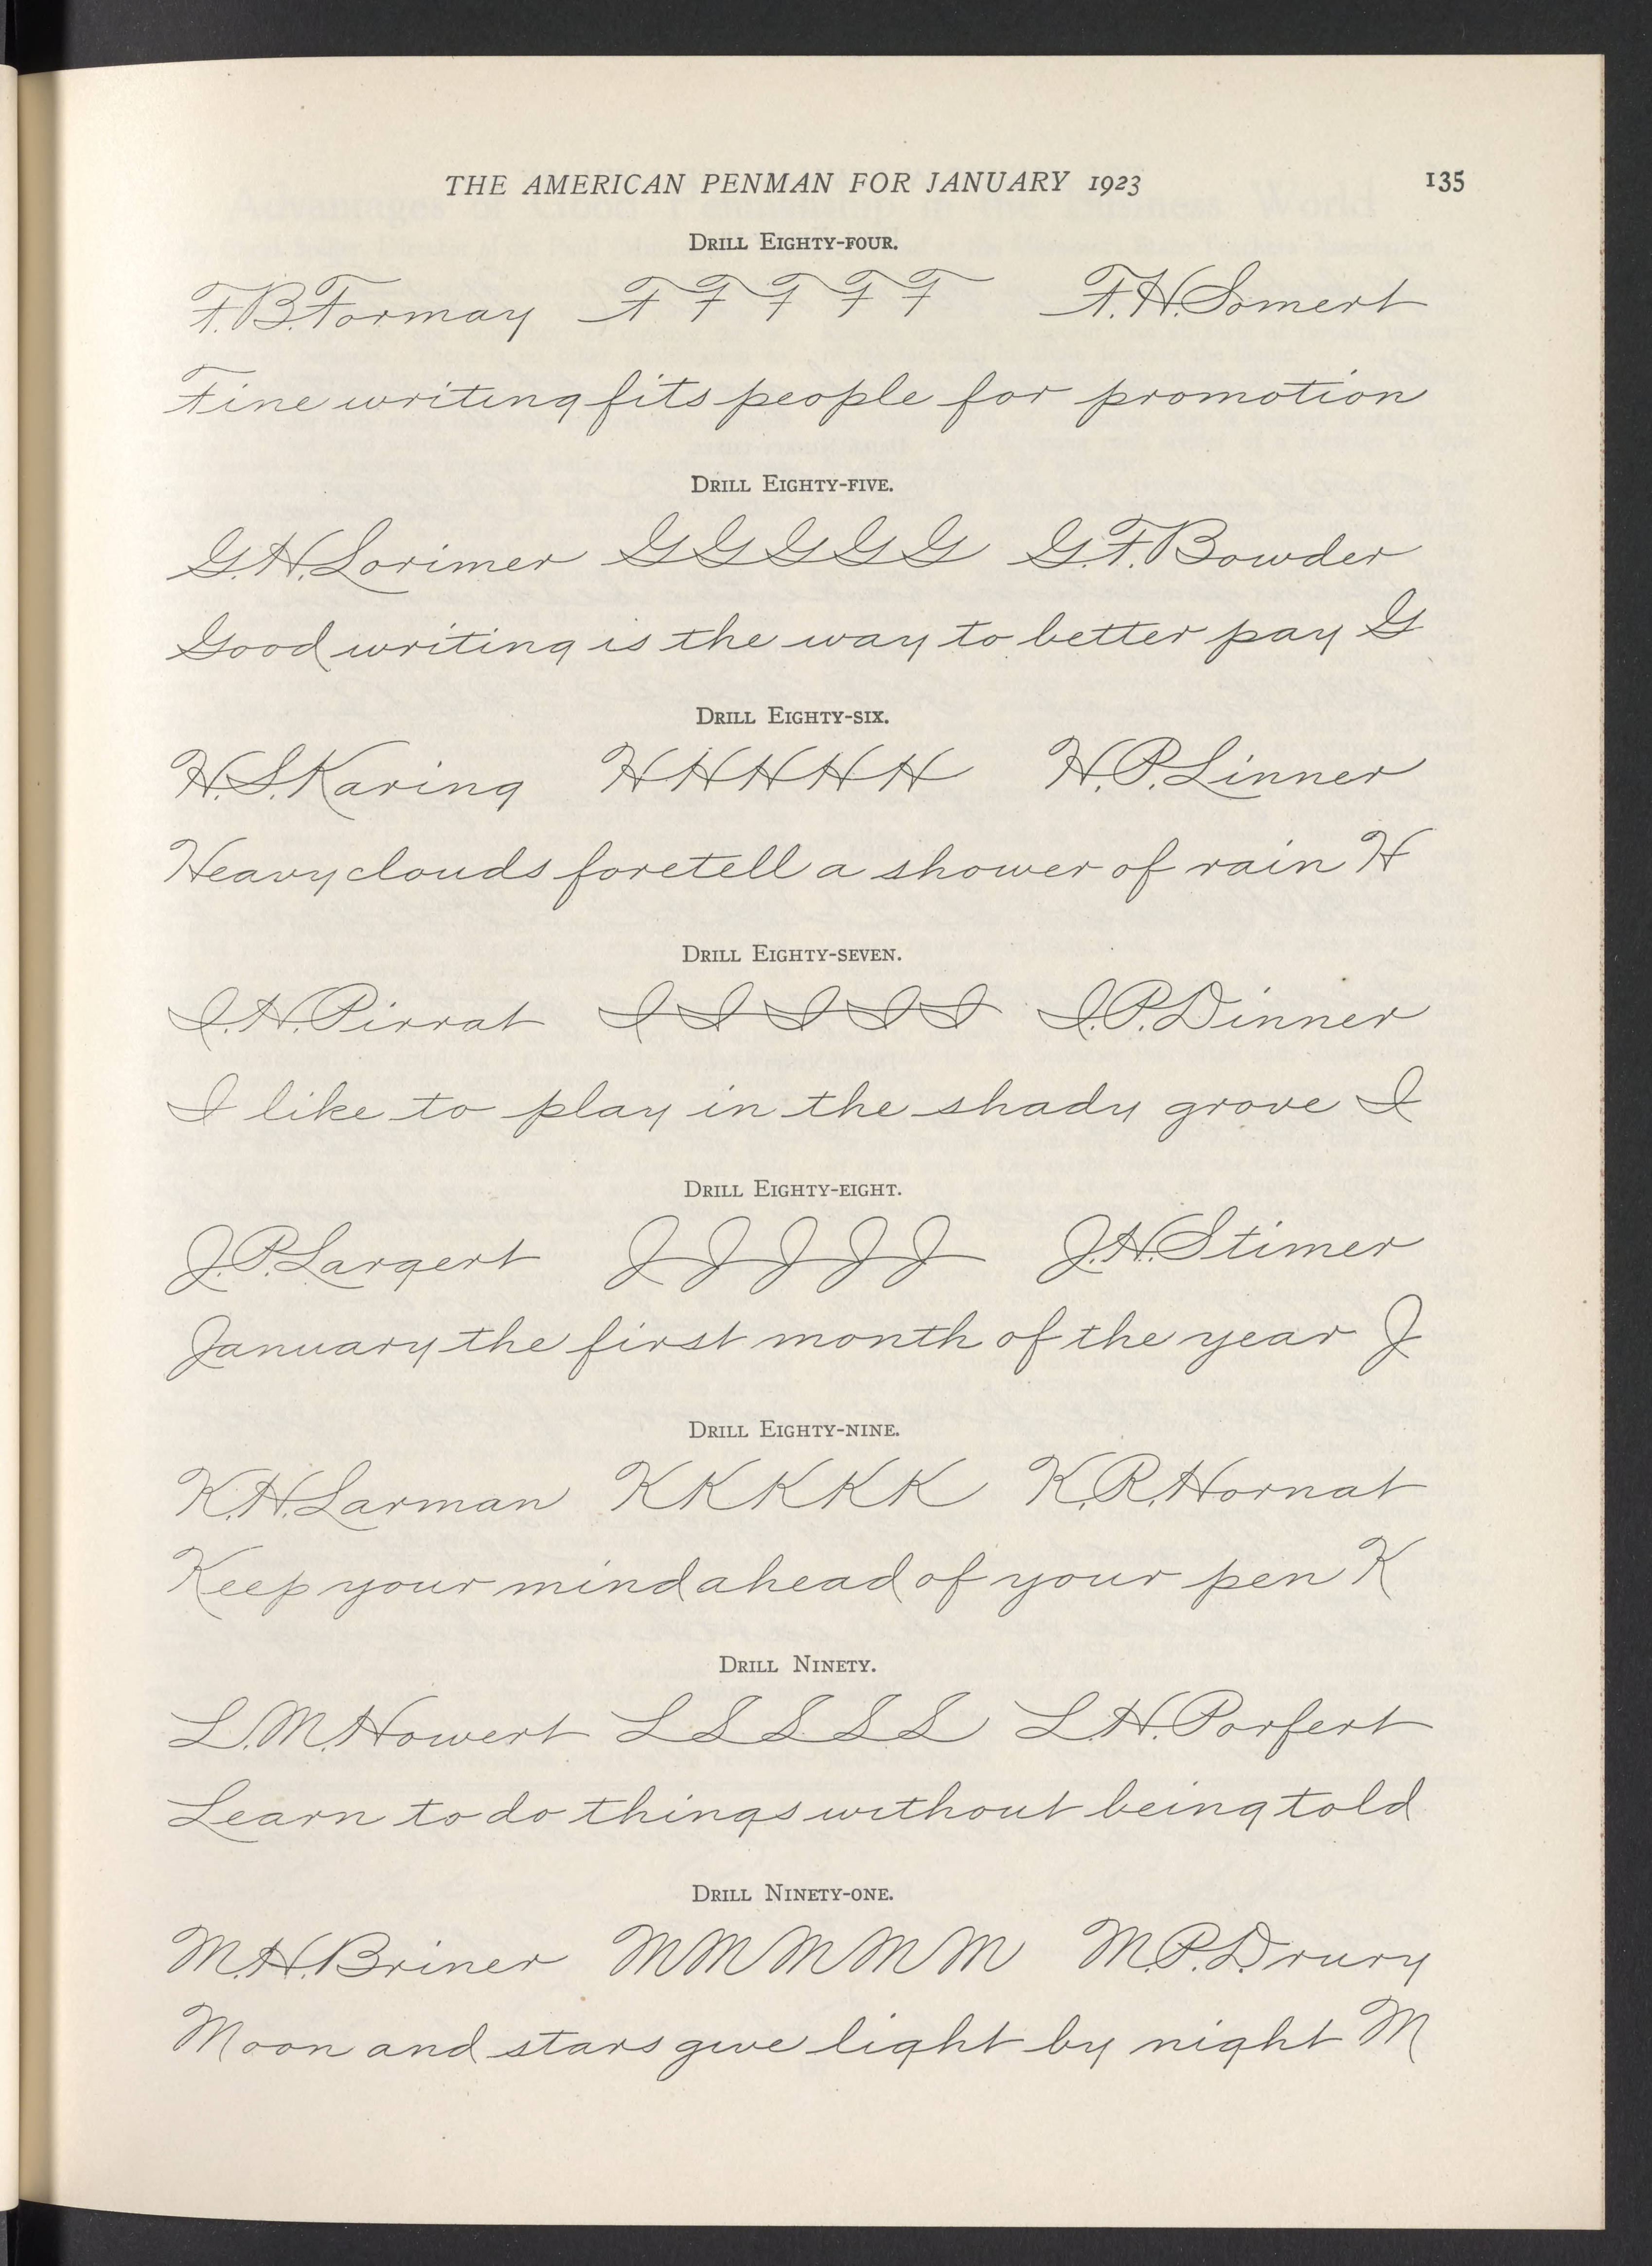 THE AMERICAN PENMAN FOR JANUARY 1923 135
DRILL EIGHTY-FOUR.
F. B. Formay F F F F F F. H. Somert
Fine writing fits people for promotion
DRILL EIGHTY-FIVE.
G. H. Lorimer G G G G G G. F. Bowder
Good writing is the way to better pay G
DRILL EIGHTY-SIX.
H. S. Karing H H H H H H. P. Linner
Heavy clouds foretell a shower of rain H
DRILL EIGHTY-SEVEN.
I. H. Pirrat I I I I I I. P. Dinner
I like to play in the shady grove I
DRILL EIGHTY-EIGHT.
J. P. Largert J J J J J J. H. Stimer
January the first month of the year J
DRILL EIGHTY-NINE.
K. H. Larman K K K K K K. R. Hornat
Keep your mind ahead of your pen K
DRILL NINETY.
L. M. Howert L L L L L L. H. Porfert
Learn to do things without being told
DRILL NINETY-ONE.
M. H. Briner M M M M M M. P. Drury
Moon and stars give light by night M